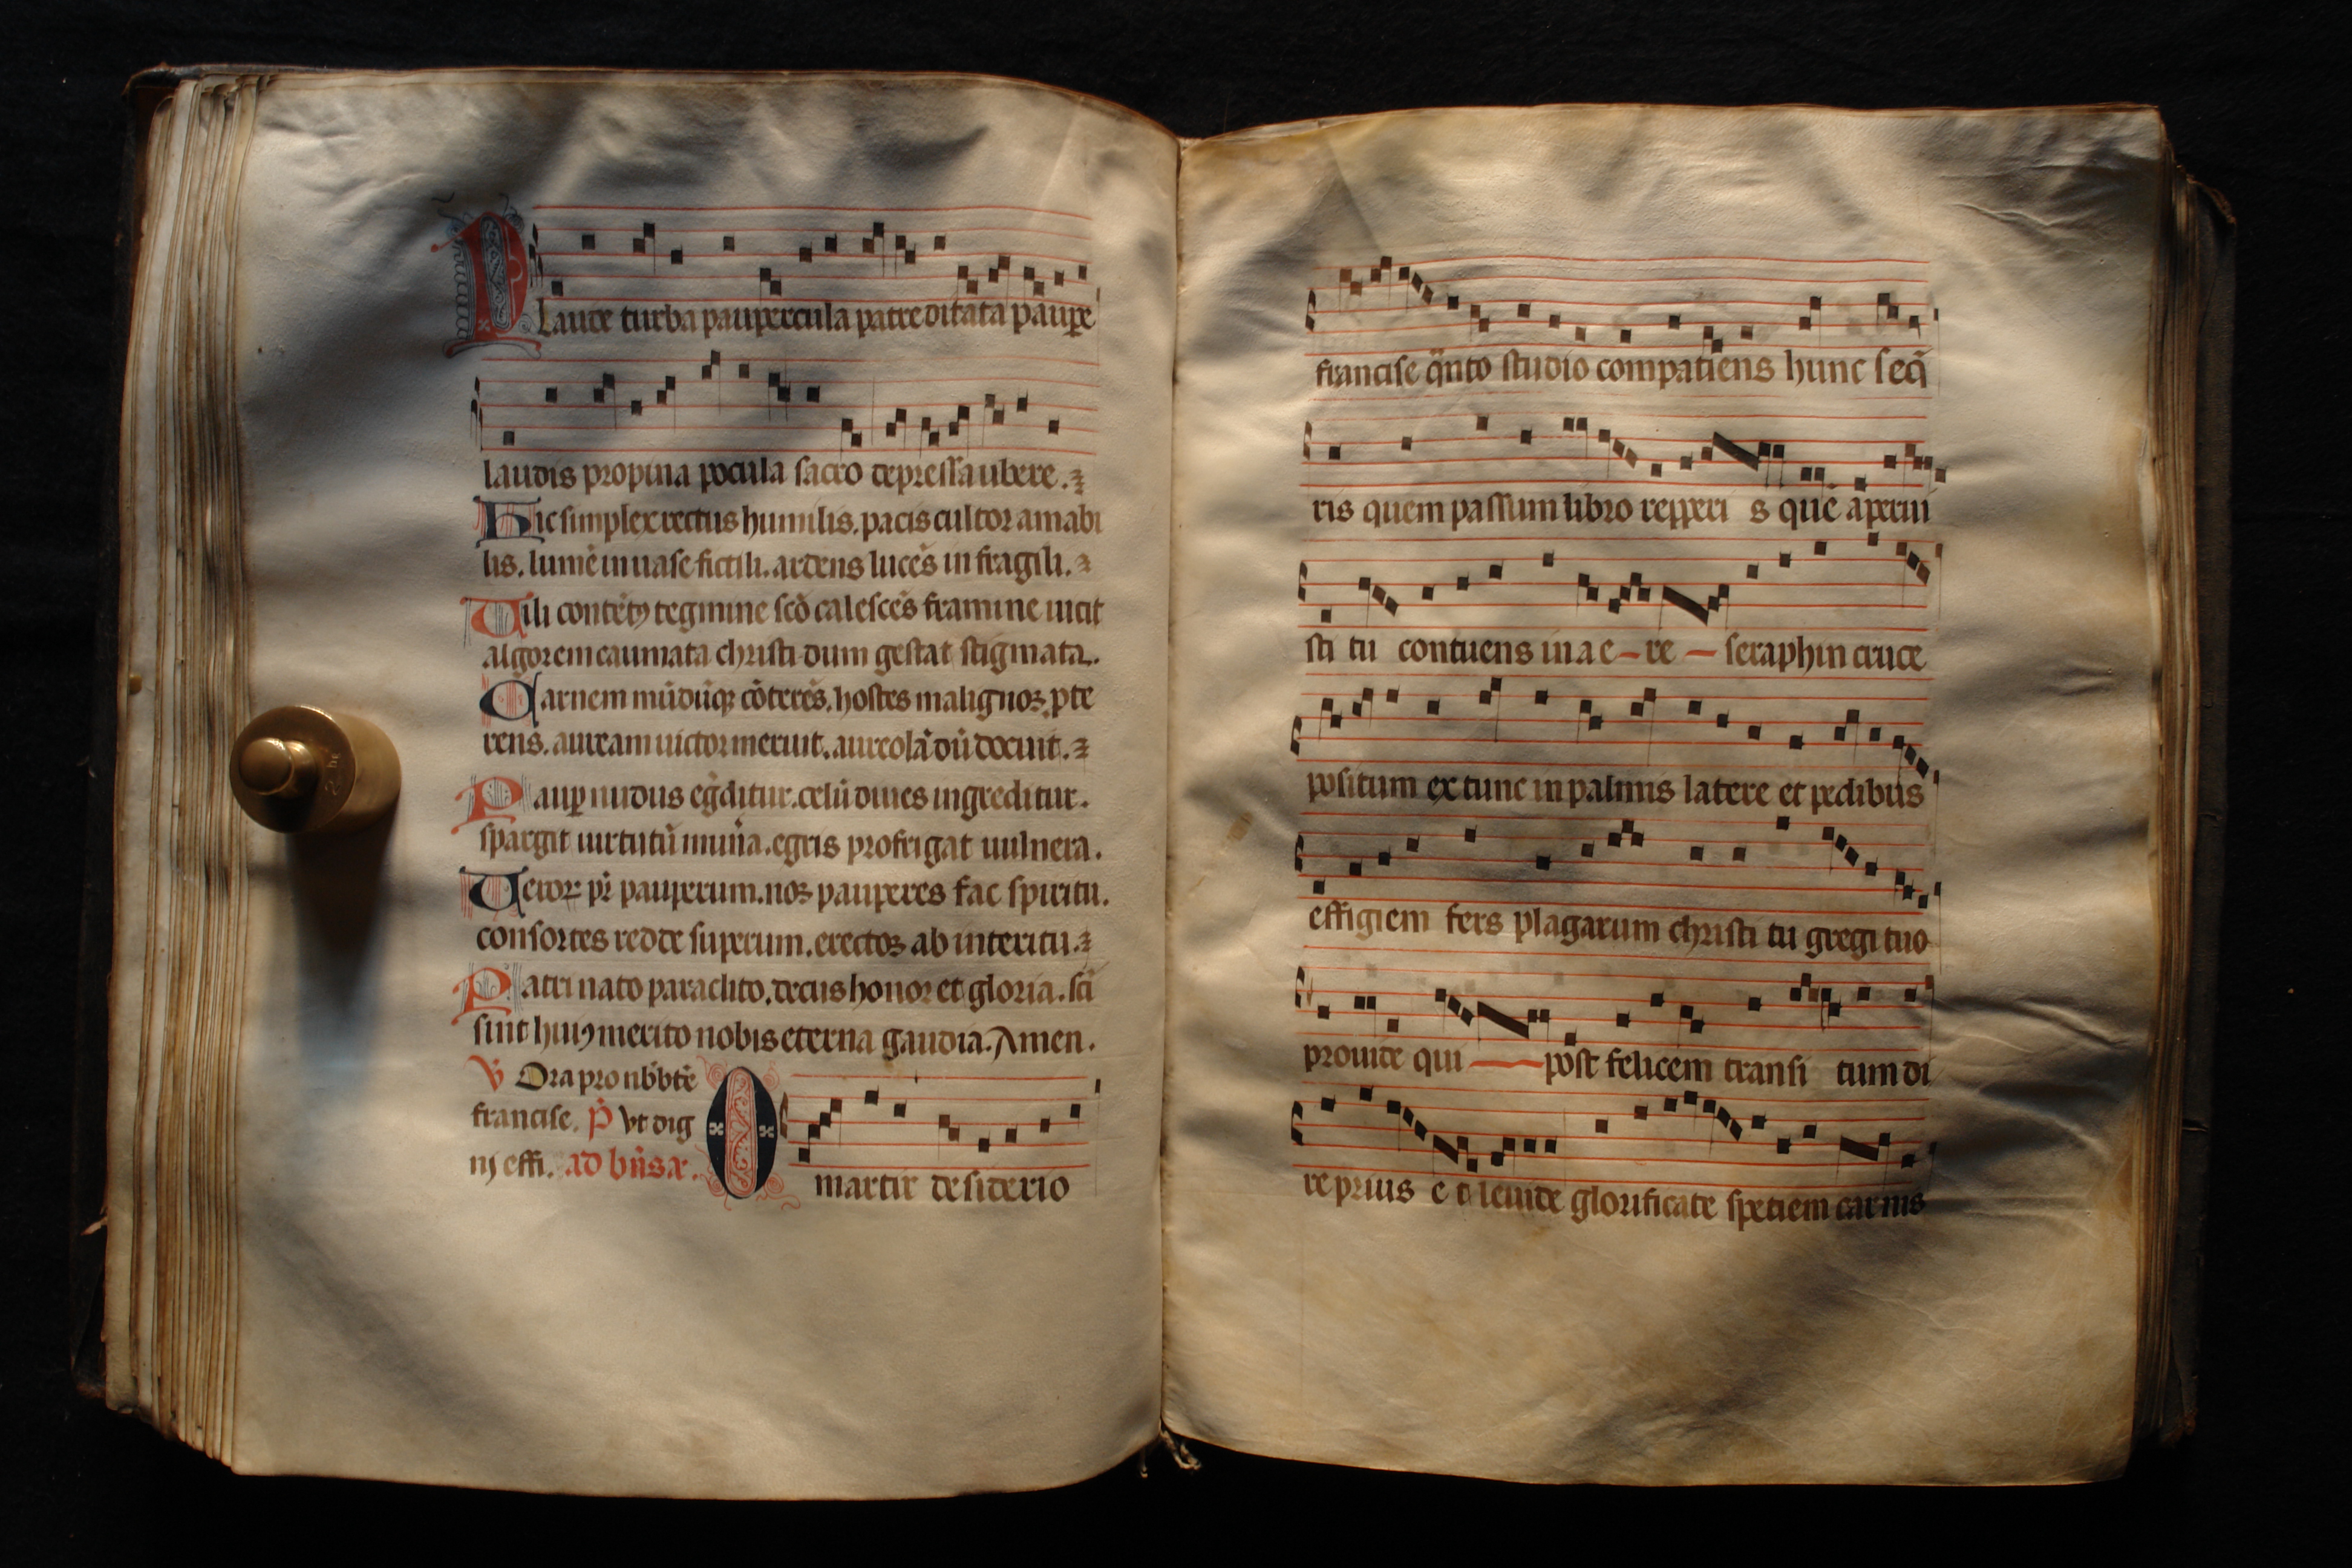 Plaude turba paupercula patre ditata paupe
laudis propina pocula sacro depressa ubere.
Hic simplex rectus humilis. pacis cultor amabi
lis. lumē in uase fictili. ardens lucēs in fragili.
Uili contētꝰ tegmine scō calescēs framine uicit
algorem caumata christi dum gestat stigmata.
Carnem mūdūqꝫ cōterēs. hostes malignos p̱te
rens. auream uictor meruit. aureolā dū docuit.
Paup̱ nudus eg̃ditur. celū diues ingreditur.
spargit uirtutū mun̄a. egris profrigat uulnera.
Uictor pr̄ pauperum. nos pauperes fac spiritu.
consortes redde superum. erectos ab interitu.
Patri nato paraclito. decus honor et gloria. sc̄i
sint huiꝰ merito nobis eterna gaudia. Amen.
℣ Ora pro nb̄ bt̄e
francisc. ℟ vt dig
nj effi. ad bn̄s a.
O martir desiderio
francisc qͣnto studio compatiens hunc seq̄
ris quem passum libro repperi s quē aperui
sti tu contuens in a e re seraphin cruce
positum ex tunc in palmis latere et pedibus
effigiem fers plagarum christi tu gregi tuo
prouide qui post felicem transi tum di
re prius glorificate speciem carnis